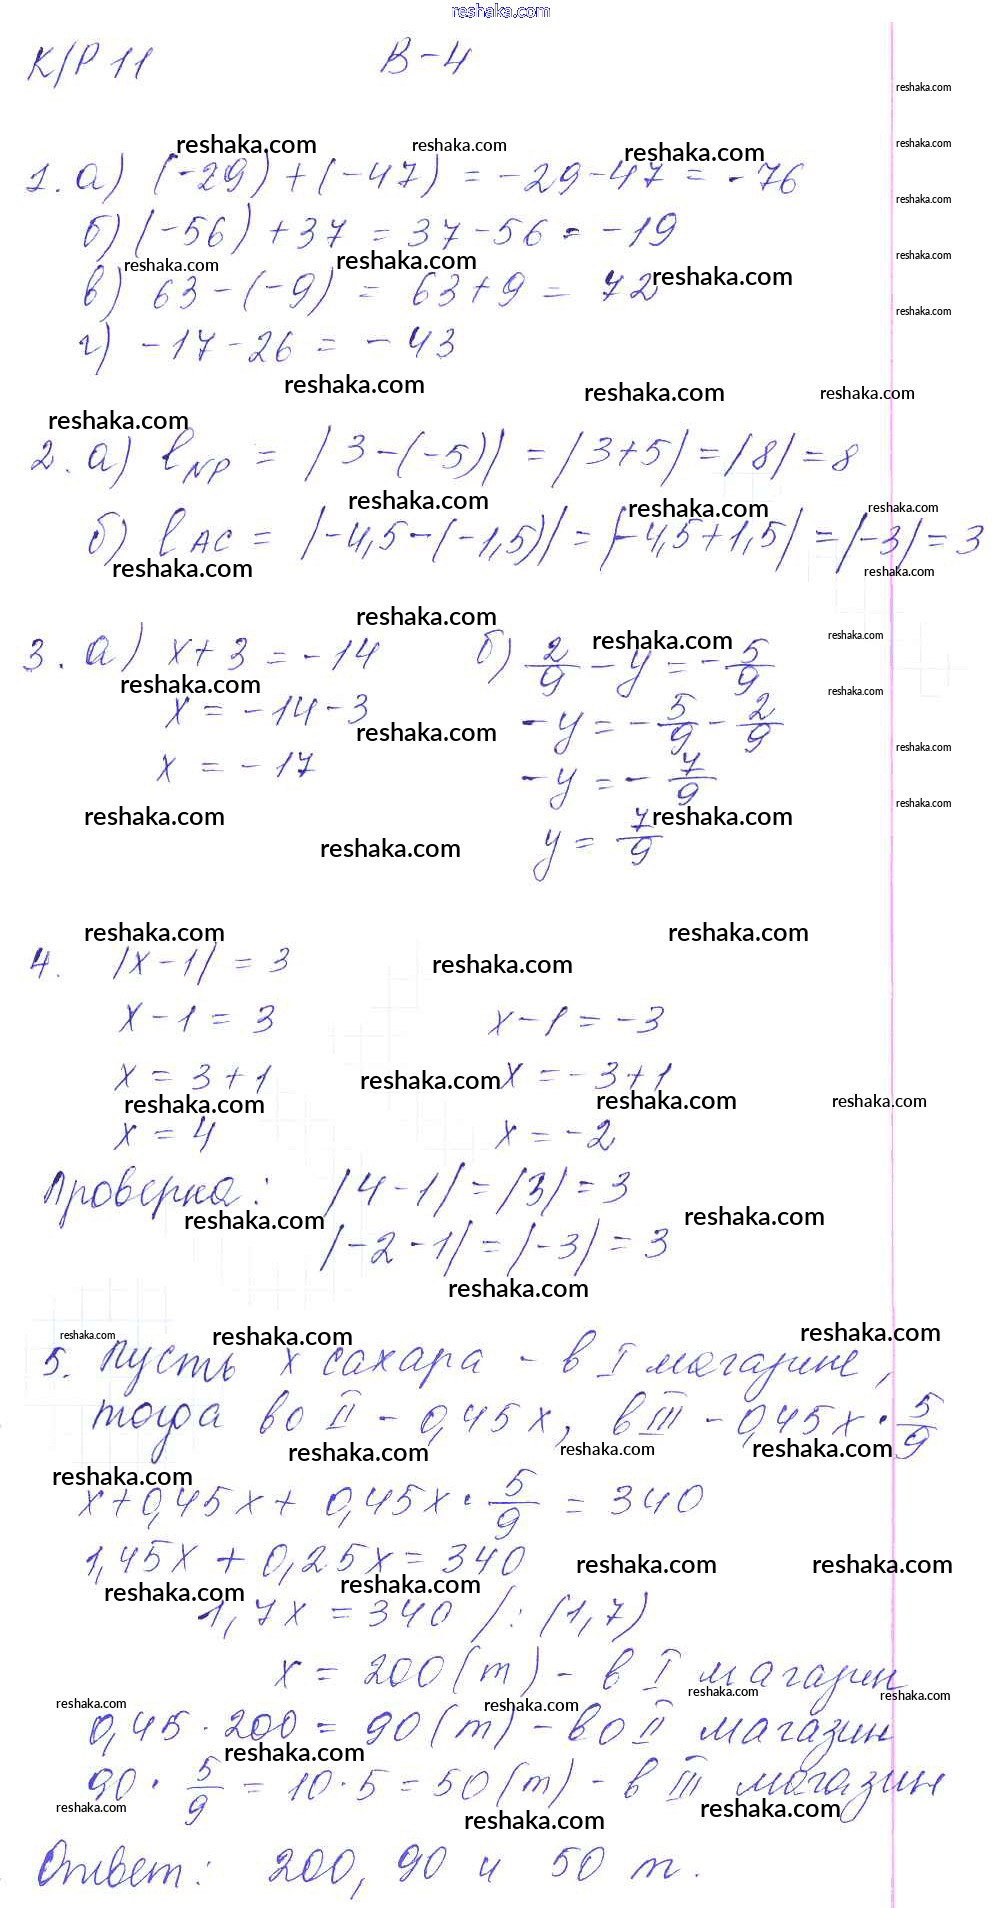 reshaka.com
К/Р 11 В-4
1. а) (-29)+(-47) = -29-47 = -76
б) (-56)+37 = 37-56 = -19
в) 63-(-9) = 63+9 = 72
г) -17-26 = -43
2. а) l_NP = |3-(-5)| = |3+5| = |8| = 8
б) l_AC = |-4,5-(-1,5)| = |-4,5+1,5| = |-3| = 3
3. а) x+3 = -14 б) 2/9 - y = -5/9
x = -14-3 -y = -5/9 - 2/9
x = -17 -y = -7/9
y = 7/9
4. |x-1| = 3
x-1 = 3 x-1 = -3
x = 3+1 x = -3+1
x = 4 x = -2
Проверка: |4-1| = |3| = 3
|-2-1| = |-3| = 3
5. Пусть x сахара - в I магазине,
тогда во II - 0,45x, в III - 0,45x · 5/9
x+0,45x+0,45x · 5/9 = 340
1,45x + 0,25x = 340
1,7x = 340 /:(1,7)
x = 200 (т) - в I магазин
0,45 · 200 = 90 (т) - во II магазин
90 · 5/9 = 10 · 5 = 50 (т) - в III магазин
Ответ: 200, 90 и 50 т.